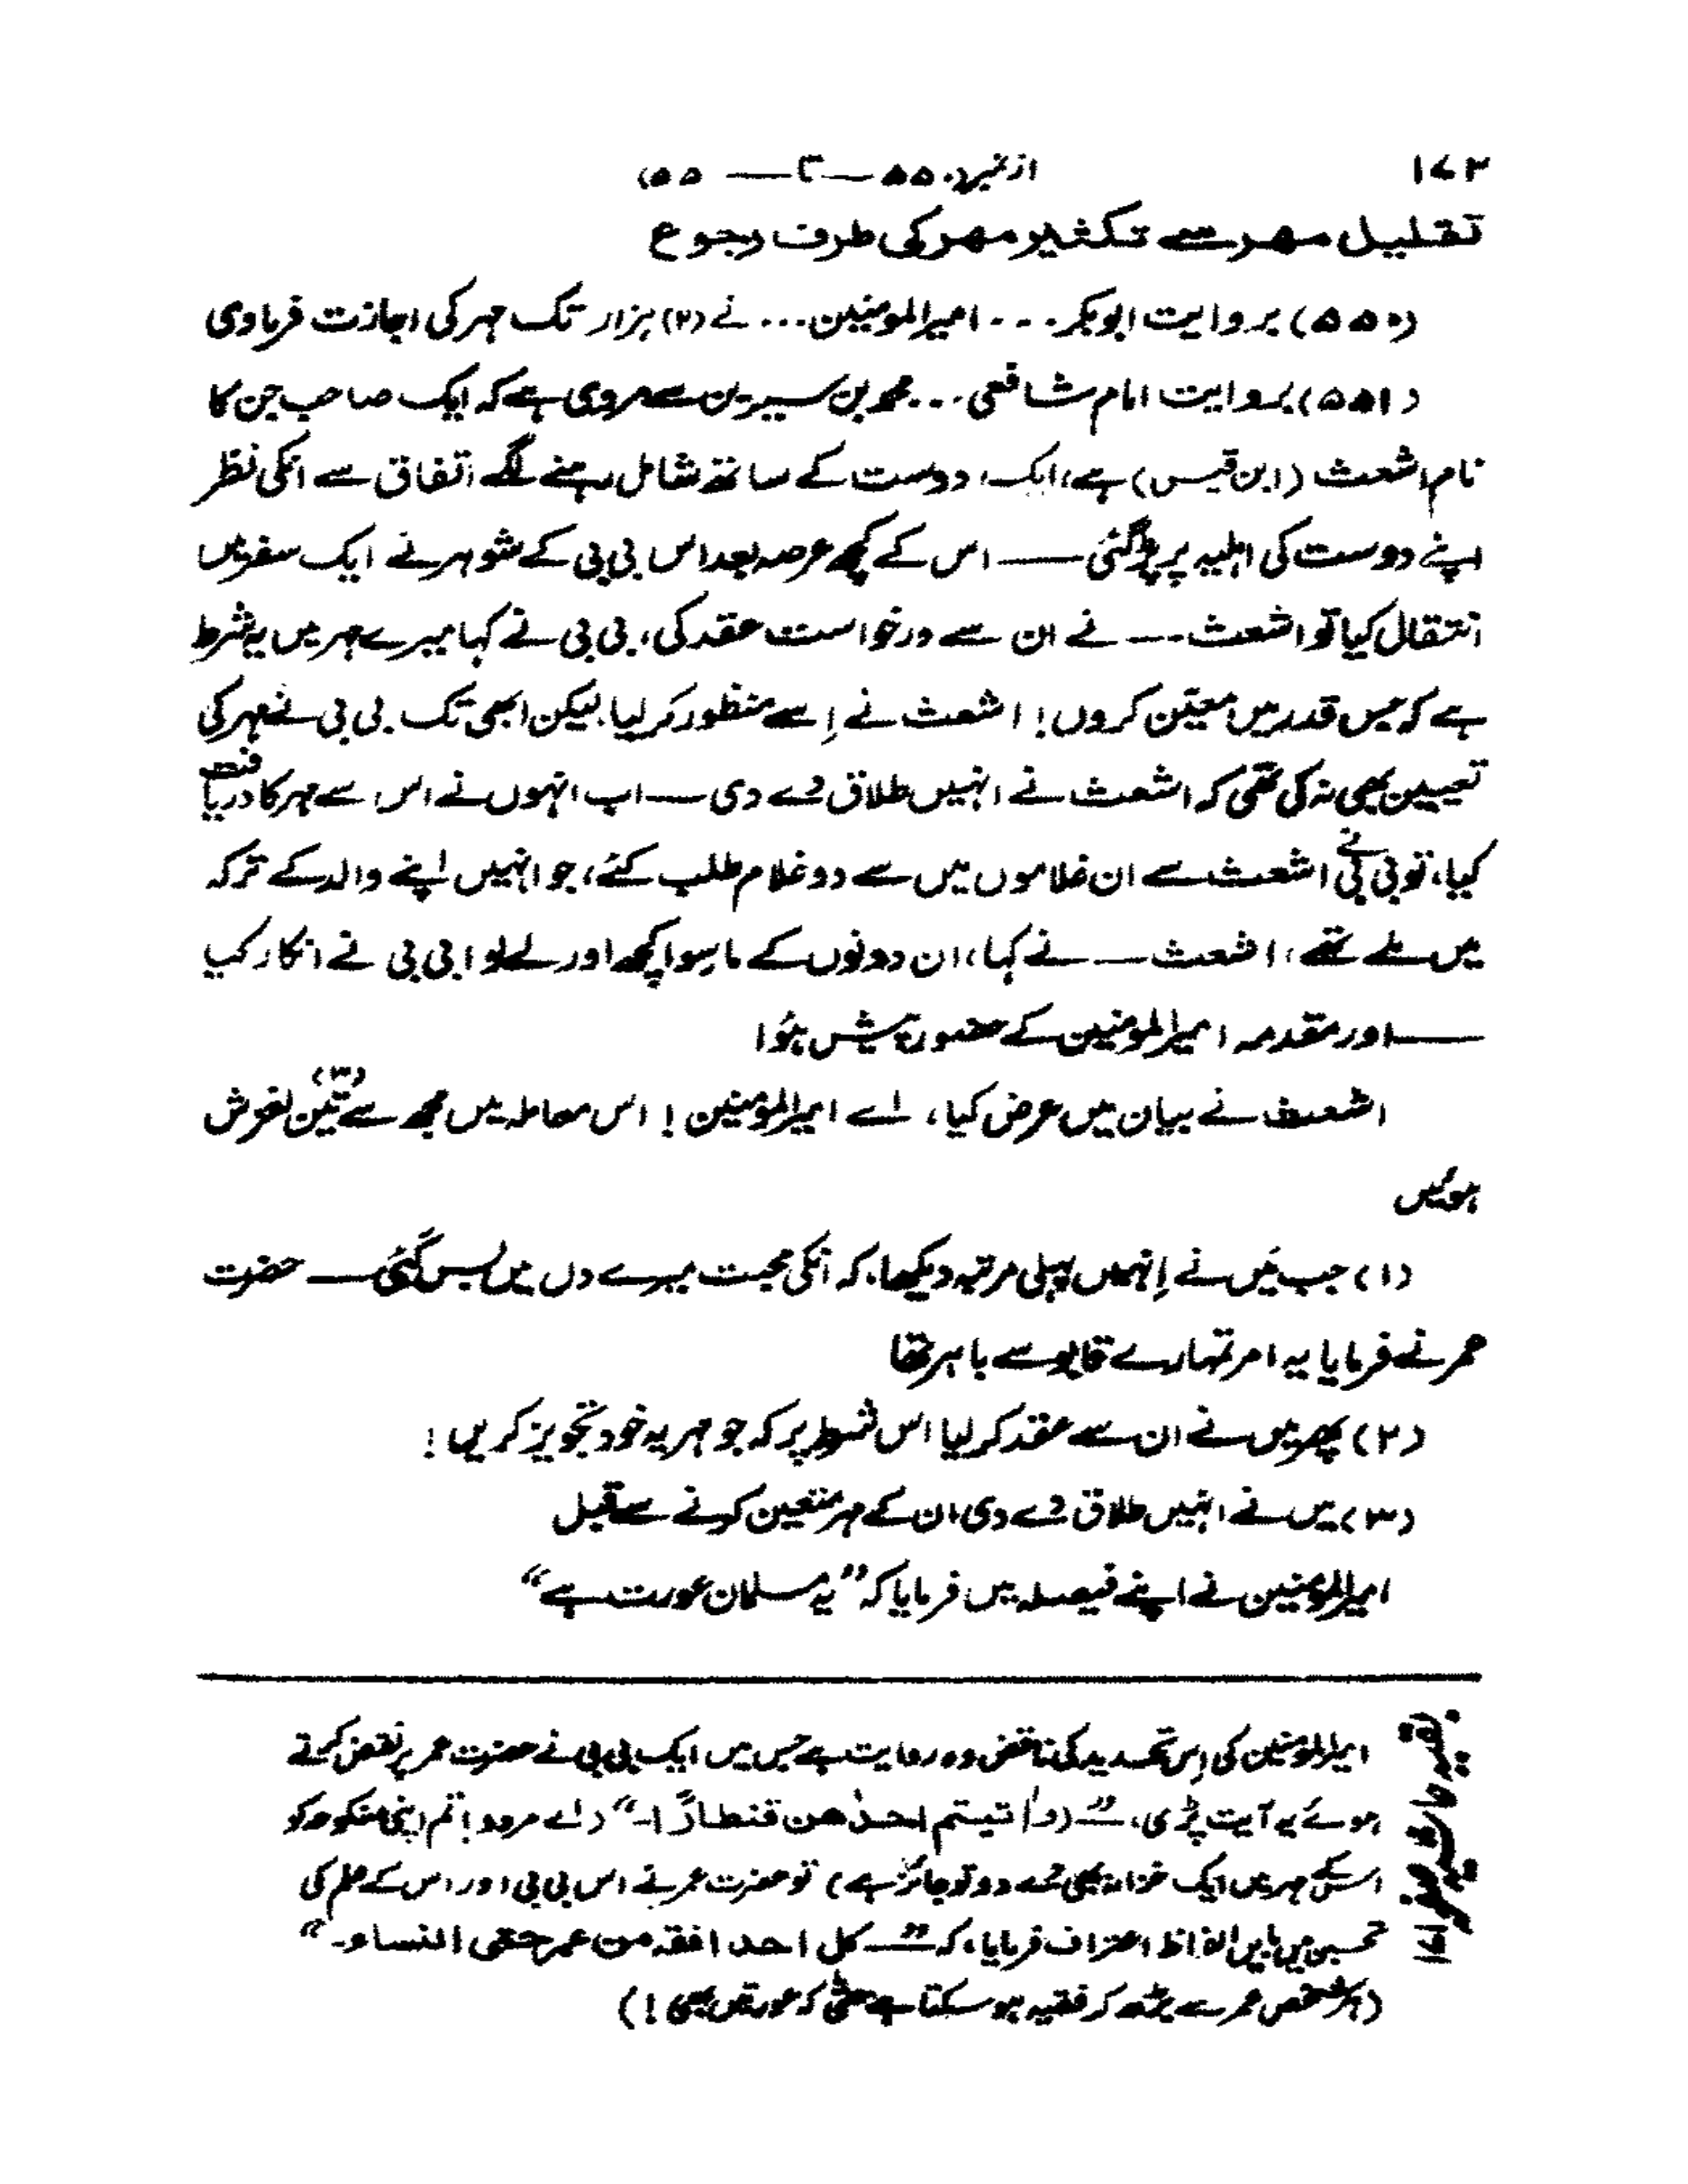 ۱۷۳
از نمبر (۵۵۰ — تا — ۵۵)
تقلیل مہر سے تکثیر مہر کی طرف رجوع
(۵۵۰) بروایت ابوبکر . . . امیرالمومنین . . . نے (۲) ہزار تک مہر کی اجازت فرما دی
(۵۵۱) بروایت امام شافعی . . . محمد بن سیرین سے مروی ہے کہ ایک صاحب جن کا
نام اشعث (ابن قیس) ہے، ایک دوست کے ساتھ شامل رہنے لگے اتفاق سے انکی نظر
اپنے دوست کی اہلیہ پر پڑ گئی — اس کے کچھ عرصہ بعد اس بی بی کے شوہر نے ایک سفر میں
انتقال کیا تو اشعث — نے ان سے درخواست عقد کی، بی بی نے کہا میرے مہر میں یہ شرط
ہے کہ جس قدر میں معیّن کروں! اشعث نے اِسے منظور کر لیا لیکن ابھی تک بی بی نے مہر کی
تعیین بھی نہ کی تھی کہ اشعث نے انہیں طلاق دے دی — اب انہوں نے اس سے مہر کا دریافت
کیا، تو بی بی نے اشعث سے ان غلاموں میں سے دو غلام طلب کئے، جو انہیں اپنے والد کے ترکہ
میں ملے تھے، اشعث — نے کہا، ان دونوں کے ماسوا کچھ اور لے لو! بی بی نے انکار کیا
— اور مقدمہ امیرالمومنین کے حضور پیش ہُوا
اشعث نے بیان میں عرض کیا، اے امیرالمومنین! اس معاملہ میں مجھ سے تین (۳) لغزش
ہوئیں
(۱) جب مَیں نے اِنہیں پہلی مرتبہ دیکھا، کہ انکی محبت میرے دل میں بس گئی — حضرت
عمر نے فرمایا یہ امر تمہارے قابو سے باہر تھا
(۲) پھر میں نے ان سے عقد کر لیا اس شرط پر کہ جو مہر یہ خود تجویز کریں!
(۳) میں نے انہیں طلاق دے دی ان کے مہر متعین کرنے سے قبل
امیرالمومنین نے اپنے فیصلہ میں فرمایا کہ ”یہ مسلمان عورت ہے“
امیرالمومنین کی اِس تحدید کی ناقض وہ روایت ہے جس میں ایک بی بی نے حضرت عمر پر نقض کرتے
ہوئے یہ آیت پڑی، ”— (و اٰتیتم احدٰھن قنطارًا۔“ (اے مردو! تم اپنی منکوحہ کو
اسکے مہر میں ایک خزانہ بھی دے دو تو جائز ہے) تو حضرت عمر نے اس بی بی اور اس کے علم کی
تحسین میں بایں الفاظ اعتراف فرمایا، کہ ”— کل احد افقہ من عمر حتی النساء۔“
(ہر شخص عمر سے بڑھ کر فقیہ ہو سکتا ہے حتٰی کہ عورتیں بھی!)